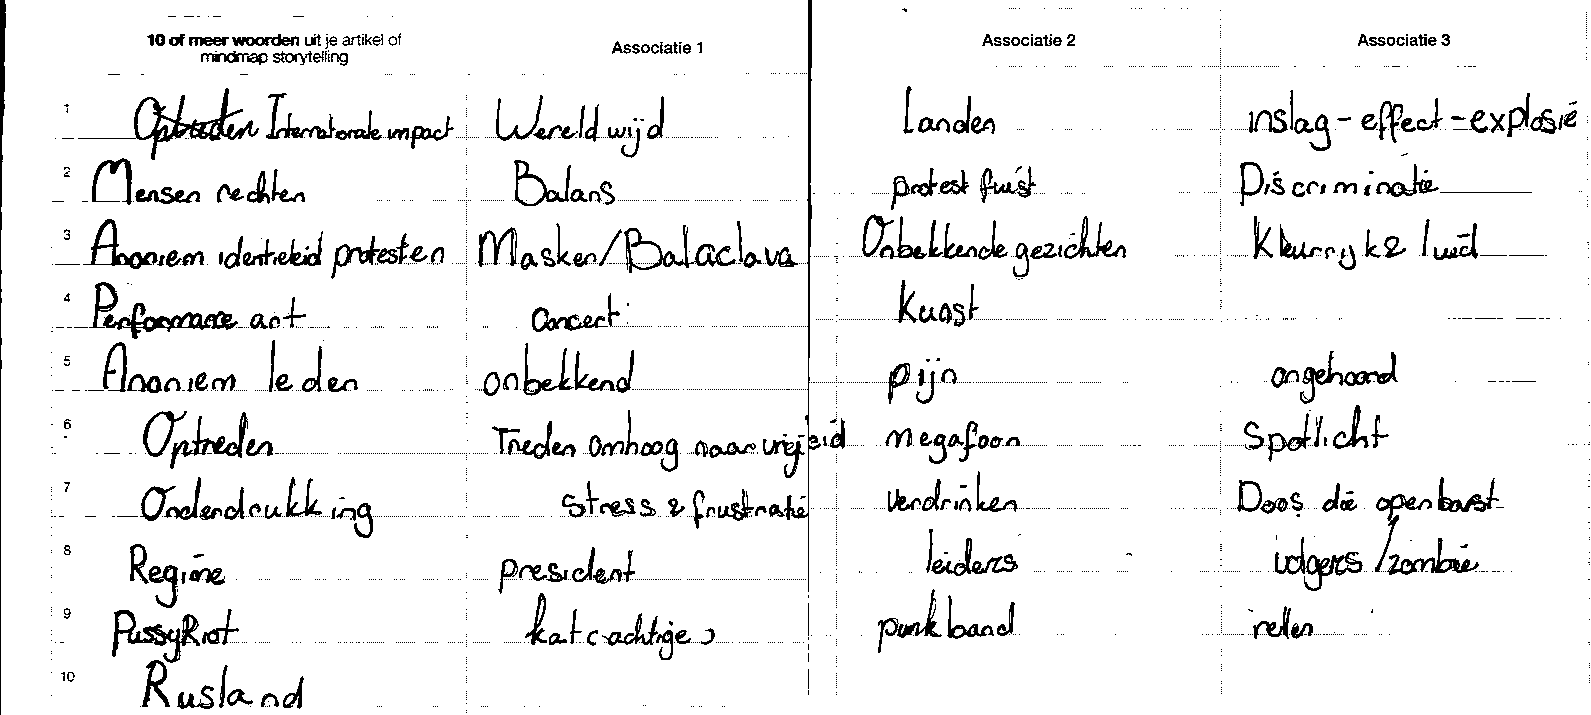 10 of meer woorden uit je artikel of
mindmap storytelling
Associatie 1
Associatie 2
Associatie 3
1 Optreden Internationale impact Wereld wijd Landen inslag - effect - explosie
2 Mensen rechten Balans protest fuist Discriminatie
3 Anoniem identiekeid protesten Masker/Balaclava Onbekkende gezichten Kleurrijk & luid
4 Performance art Concert Kunst
5 Anoniem leden onbekkend pijn ongehoord
6 Optreden Treden omhoog naar vrijeid megafoon Spotlicht
7 Onderdrukking Stress & frustratie verdrinken Doos die openbarst
8 Regime president leiders volgers/zombie
9 PussyRiot kat(achtige) punk band rellen
10 Rusland